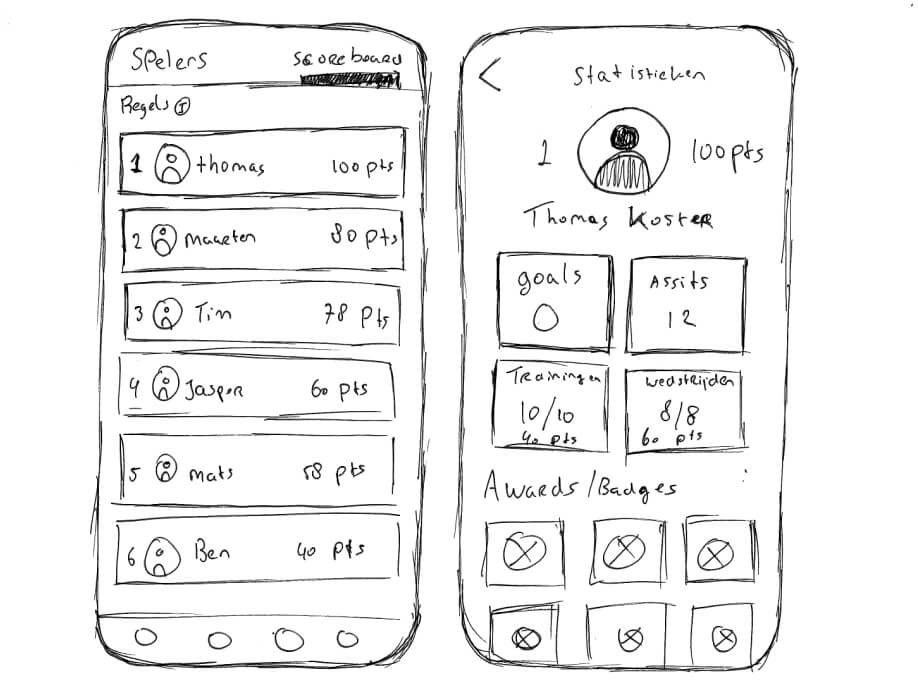 Spelers scoreboard
Regels i
1 thomas 100 pts
2 Maarten 80 pts
3 Tim 78 pts
4 Jasper 60 pts
5 mats 58 pts
6 Ben 40 pts
< Statistieken
1 100 pts
Thomas Koster
goals
0
Assits
12
Trainingen
10/10
40 pts
wedstrijden
8/8
60 pts
Awards/Badges